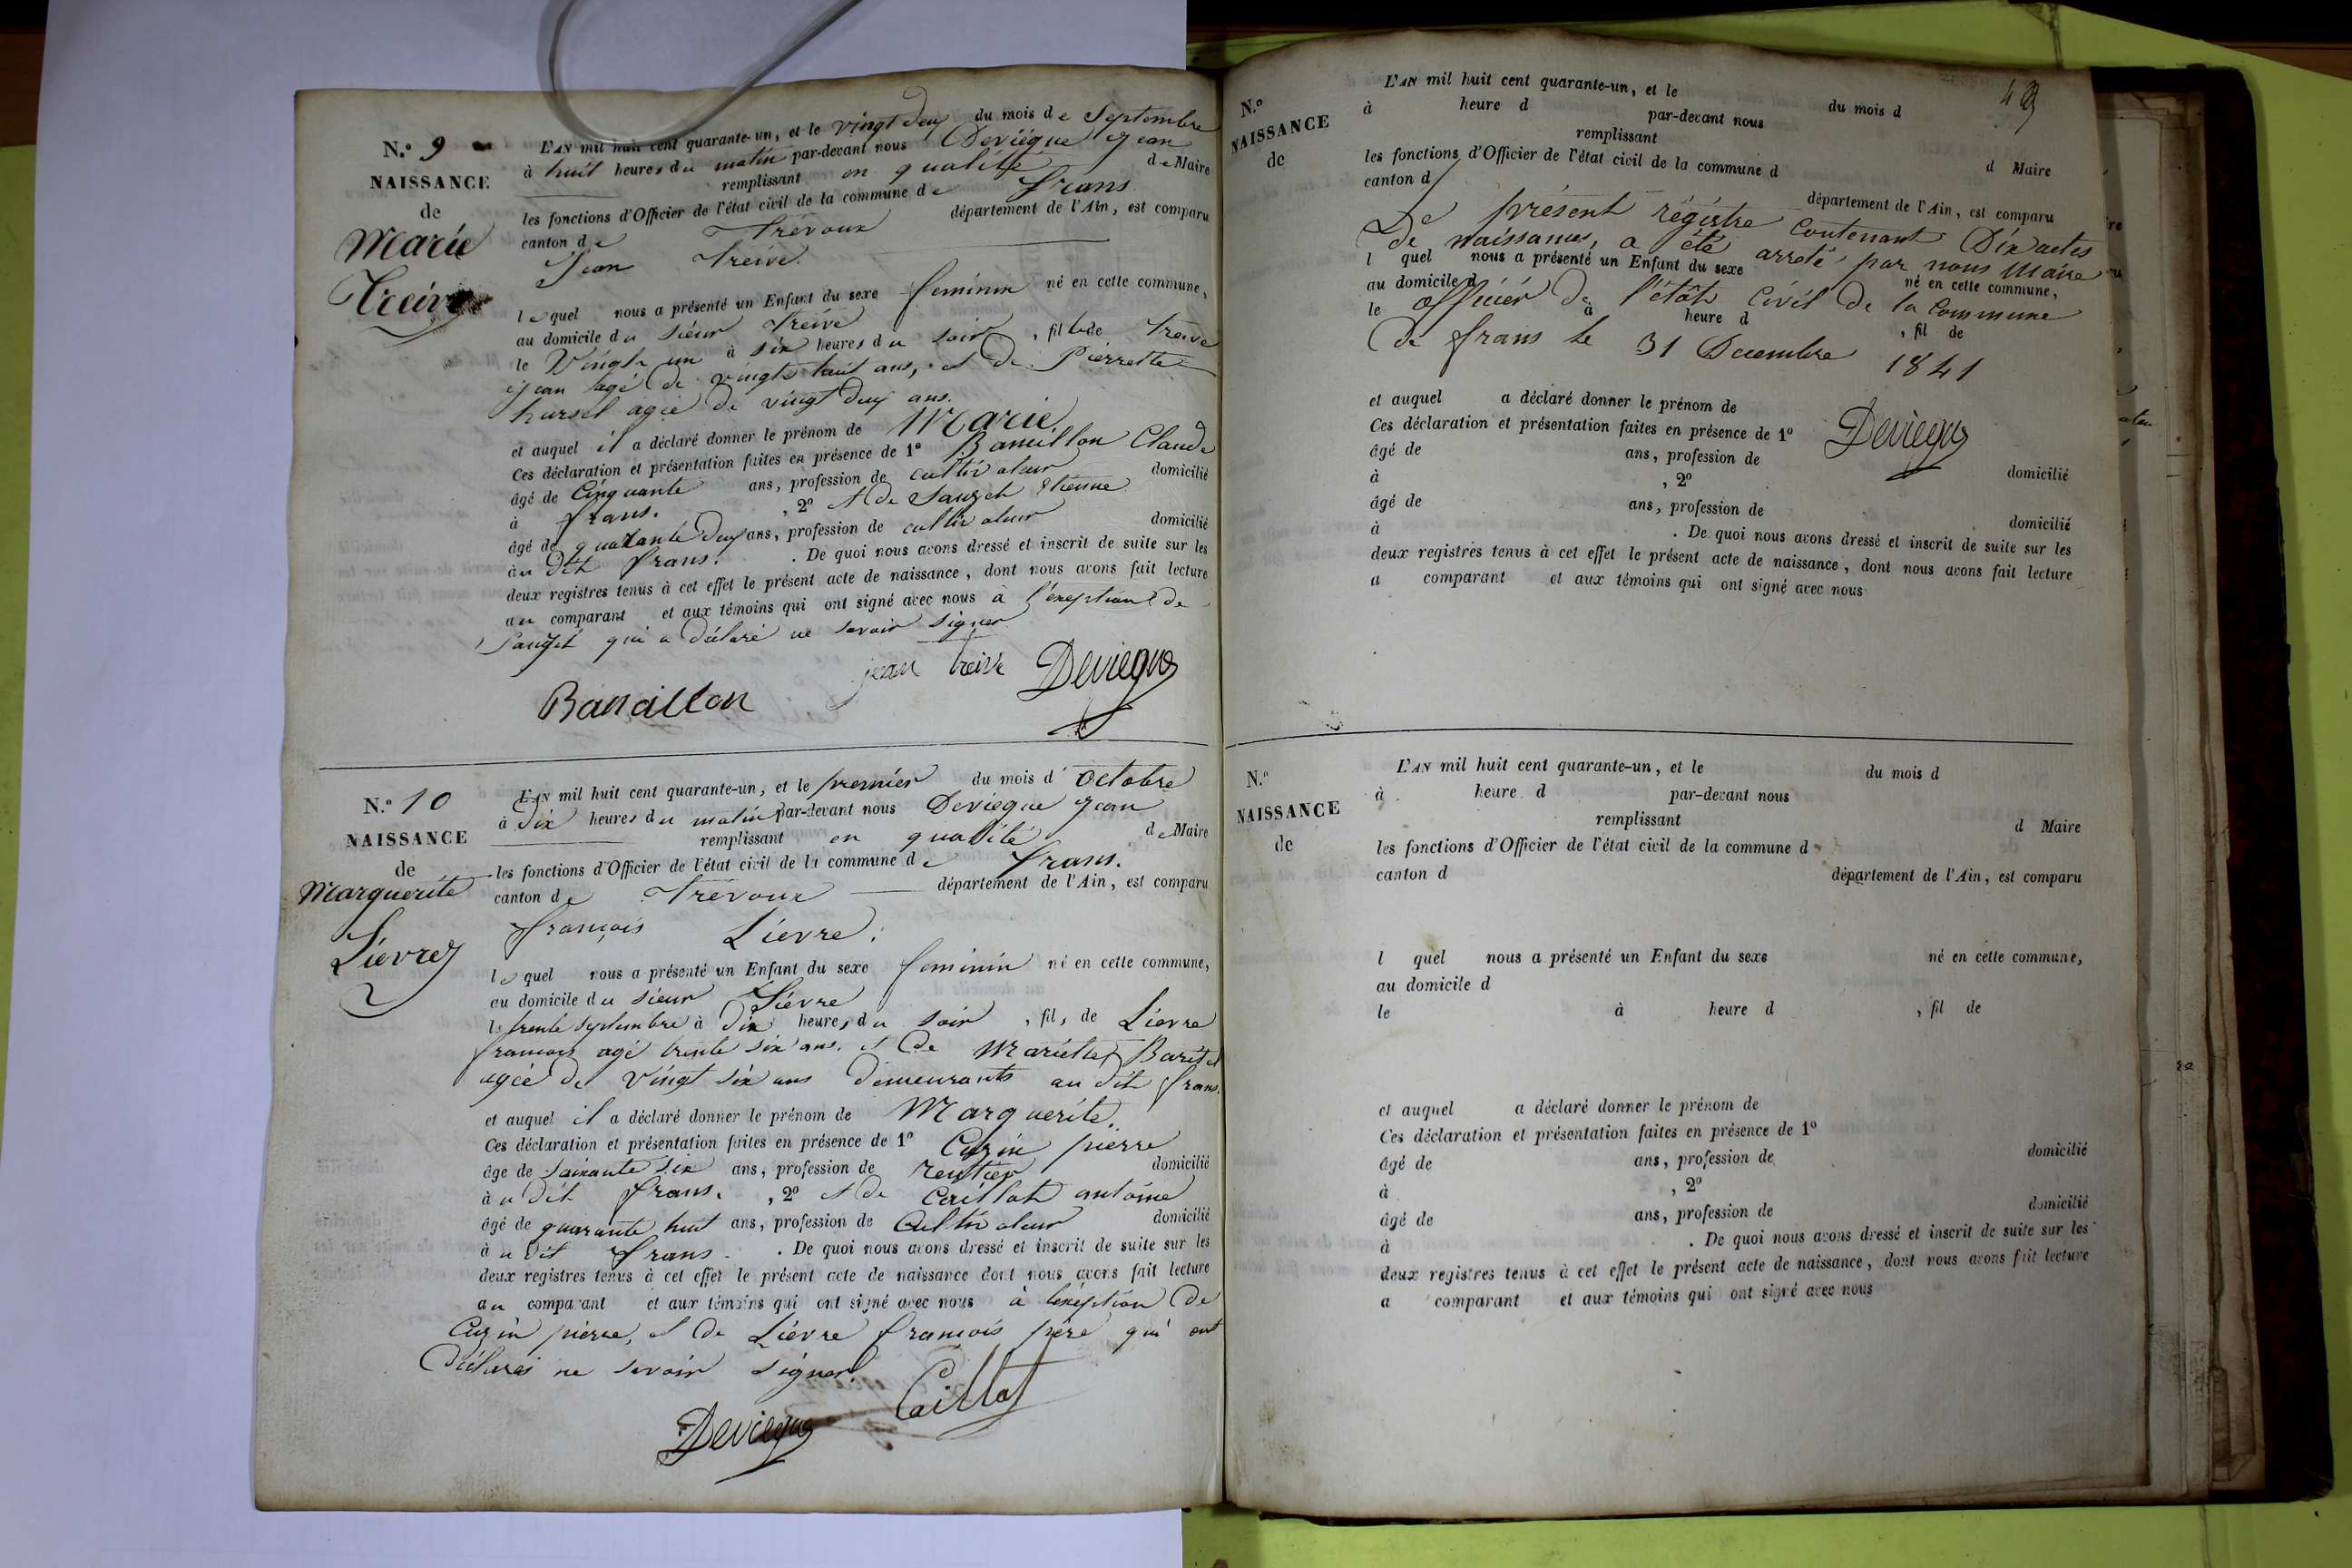 N.º 9
NAISSANCE
de
Marie
Treive
L'AN mil huit cent quarante-un, et le vingt deux du mois de Septembre
à huit heures du matin par-devant nous Deviégue Jean
remplissant en qualité de Maire
les fonctions d'Officier de l'état civil de la commune de frans
canton de Trévoux département de l'Ain, est comparu
Jean Treive.
lequel nous a présenté un Enfant du sexe feminin né en cette commune,
au domicile du sieur Treive
le Vingt un à six heures du soir, fille de Treive
Jean agé de vingt huit ans, et de Pierrette
agée de vingt deux ans.
et auquel il a déclaré donner le prénom de Marie.
Ces déclaration et présentation faites en présence de 1º Banaillon Claude
âgé de Cinquante ans, profession de cultivateur domicilié
à frans. , 2º et de Sauzet Etienne
âgé de quarante deux ans, profession de cultivateur domicilié
au dit frans. . De quoi nous avons dressé et inscrit de suite sur les
deux registres tenus à cet effet le présent acte de naissance, dont nous avons fait lecture
au comparant et aux témoins qui ont signé avec nous a l'exeption de
Sauzet qui a déclaré ne savoir signer
jean treive Deviegue
Banaillon
N.º 10
NAISSANCE
de
Marguerite
Lievre
L'AN mil huit cent quarante-un, et le premier du mois d'octobre
à Dix heures du matin par-devant nous Deviegue Jean
remplissant en qualité de Maire
les fonctions d'Officier de l'état civil de la commune de frans.
canton de Trévoux département de l'Ain, est comparu
françois Lievre.
lequel nous a présenté un Enfant du sexe feminin né en cette commune,
au domicile du sieur Lièvre
le trente septembre à Dix heures du soir, fils de Lievre
francois agé trente six ans. et de Mariette Baritel
agée de Vingt six ans demeurants au dit frans.
et auquel il a déclaré donner le prénom de Marguerite.
Ces déclaration et présentation faites en présence de 1º Cuzin pierre
âge de soixante six ans, profession de rentier domicilié
à u dit frans. , 2º et de Caillat antoine
âgé de quarante huit ans, profession de Cultivateur domicilié
à u dit frans . De quoi nous avons dressé et inscrit de suite sur les
deux registres tenus à cet effet le présent acte de naissance dont nous avons fait lecture
au comparant et aux témoins qui ont signé avec nous à lexeption de
Cuzin pierre, et de Lièvre françois père qui ont
déclarés ne savoir signer.
Deviegue Caillat
N.º
NAISSANCE
de
L'AN mil huit cent quarante-un, et le du mois d
à heure d par-devant nous
remplissant d Maire
les fonctions d'Officier de l'état civil de la commune d
canton d département de l'Ain, est comparu
présent régistre contenant Dix actes
De naissances, a été arreté par nous Maire
l quel nous a présenté un Enfant du sexe né en cette commune,
au domicile d
officier de l'étât civil de la commune
le à heure d , fil de
De frans le 31 Decembre 1841
et auquel a déclaré donner le prénom de
Ces déclaration et présentation faites en présence de 1º
Deviegue
âgé de ans, profession de domicilié
à , 2º
âgé de ans, profession de domicilié
à . De quoi nous avons dressé et inscrit de suite sur les
deux registres tenus à cet effet le présent acte de naissance, dont nous avons fait lecture
a comparant et aux témoins qui ont signé avec nous
N.º
NAISSANCE
de
L'AN mil huit cent quarante-un, et le du mois d
à heure d par-devant nous
remplissant d Maire
les fonctions d'Officier de l'état civil de la commune d
canton d département de l'Ain, est comparu
l quel nous a présenté un Enfant du sexe né en cette commune,
au domicile d
le à heure d , fil de
et auquel a déclaré donner le prénom de
Ces déclaration et présentation faites en présence de 1º
âgé de ans, profession de domicilié
à , 2º
âgé de ans, profession de domicilié
à . De quoi nous avons dressé et inscrit de suite sur les
deux registres tenus à cet effet le présent acte de naissance, dont nous avons fait lecture
a comparant et aux témoins qui ont signé avec nous